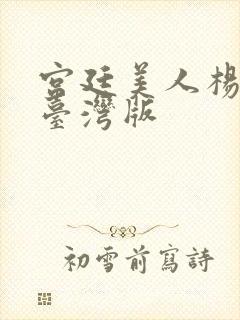 宮廷美人楊
臺灣版
初雪前寫詩